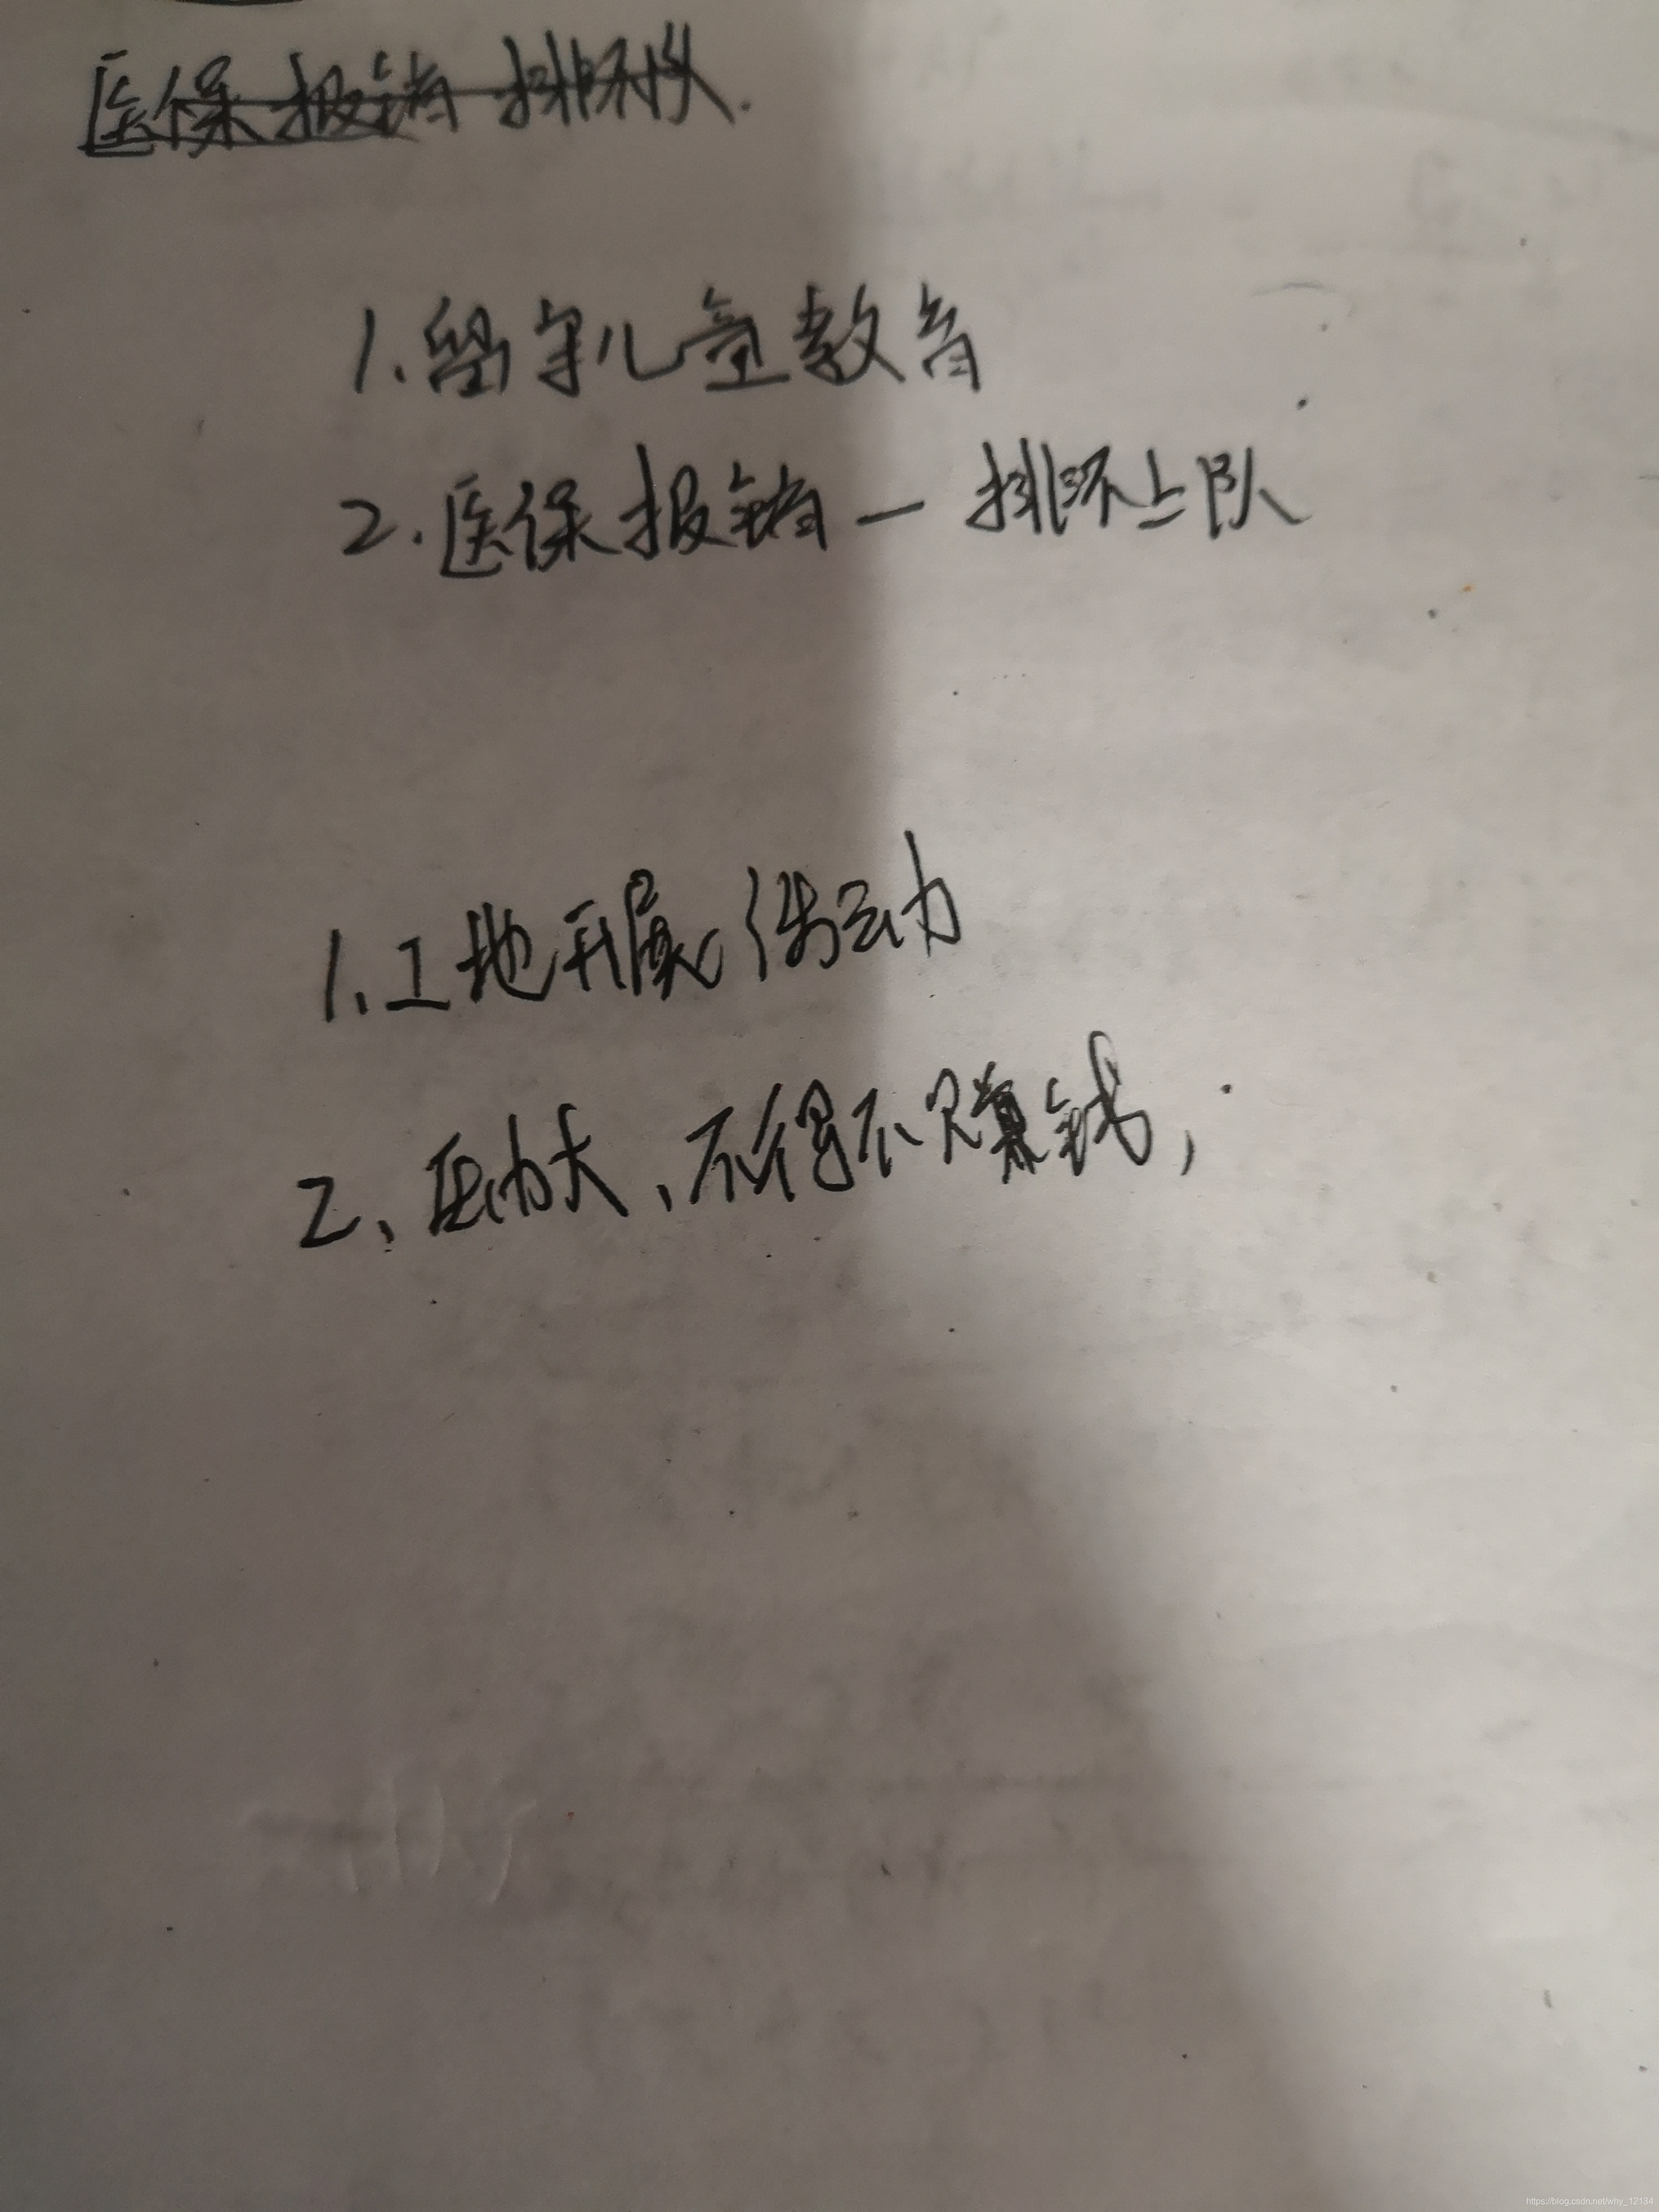 医保报销 排不队.
1.留守儿童教育
2.医保报销一排不上队
1、工地开展活动
2、压力大、不得不赚钱,
https://blog.csdn.net/why_12134